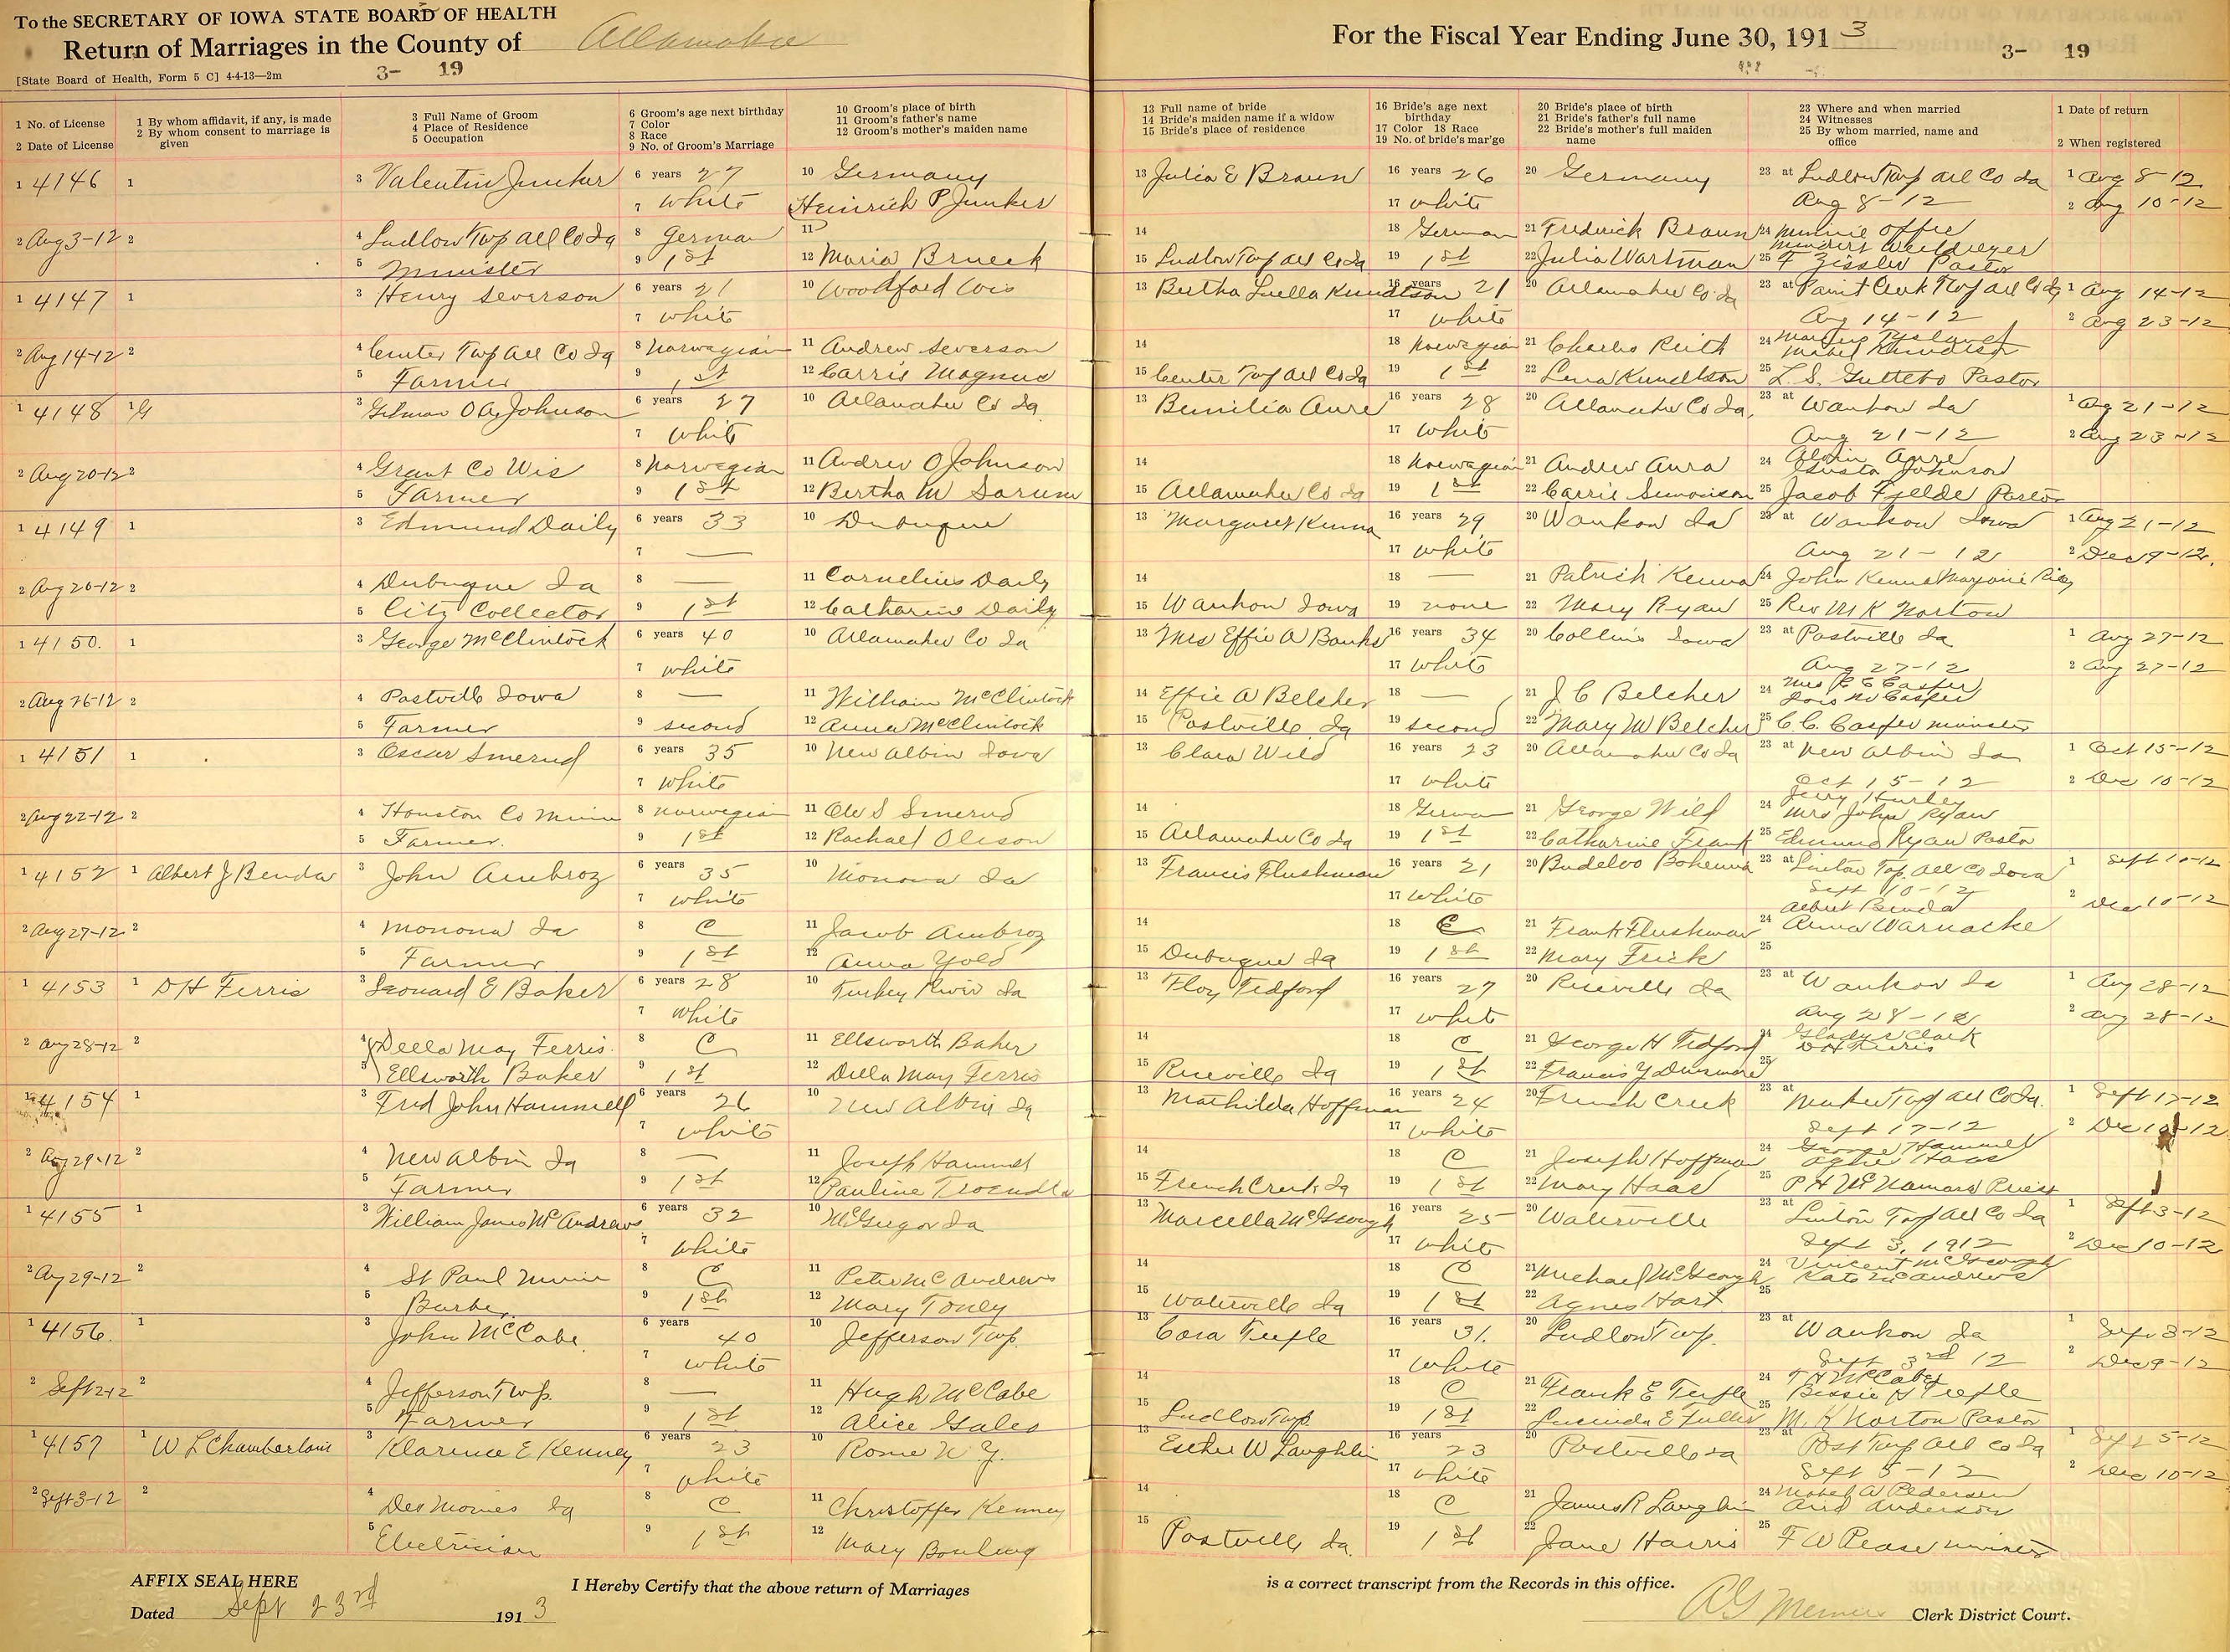 To the SECRETARY OF IOWA STATE BOARD OF HEALTH
Return of Marriages in the County of Allamakee
[State Board of Health, Form 5 C] 4-4-13—2m
3- 19
For the Fiscal Year Ending June 30, 1913
3- 19
1 No. of License
2 Date of License
1 By whom affidavit, if any, is made
2 By whom consent to marriage is given
3 Full Name of Groom
4 Place of Residence
5 Occupation
6 Groom's age next birthday
7 Color
8 Race
9 No. of Groom's Marriage
10 Groom's place of birth
11 Groom's father's name
12 Groom's mother's maiden name
13 Full name of bride
14 Bride's maiden name if a widow
15 Bride's place of residence
16 Bride's age next birthday
17 Color 18 Race
19 No. of bride's mar'ge
20 Bride's place of birth
21 Bride's father's full name
22 Bride's mother's full maiden name
23 Where and when married
24 Witnesses
25 By whom married, name and office
1 Date of return
2 When registered
1 4146 1 3 Valentin Junker 6 years 27 10 Germany 13 Julia E Braun 16 years 26 20 Germany 23 at Ludlow Twp All Co Ia 1 Aug 8-12
7 White Heinrich P Junker 17 White Aug 8-12 2 Aug 10-12
2 Aug 3-12 2 4 Ludlow Twp All Co Ia 8 German 11 14 18 German 21 Fredrick Braun 24 Minnie
5 Minister 9 1st 12 Maria Brueck 15 Ludlow Twp All Co Ia 19 1st 22 Julia Wartman 25 F Zissler Pastor
1 4147 1 3 Henry Severson 6 years 21 10 Woodford Wis 13 Bertha Luella Knudtson 16 years 21 20 Allamakee Co Ia 23 at Paint Creek Twp All Co Ia 1 Aug 14-12
7 White 17 White Aug 14-12 2 Aug 23-12
2 Aug 14-12 2 4 Center Twp All Co Ia 8 Norwegian 11 Andrew Severson 14 18 Norwegian 21 Charles Reith 24 Mabel Knudtson
5 Farmer 9 1st 12 Carrie Magnus 15 Center Twp All Co Ia 19 1st 22 Lena Knudtson 25 L. S. Guttebo Pastor
1 4148 1 3 Gilman O A Johnson 6 years 27 10 Allamakee Co Ia 13 Bernilia Aure 16 years 28 20 Allamakee Co Ia. 23 at Waukon Ia 1 Aug 21-12
7 White 17 White Aug 21-12 2 Aug 23-12
2 Aug 20-12 2 4 Grant Co Wis 8 Norwegian 11 Andrew O Johnson 14 18 Norwegian 21 Andrew Aura 24 Alvin Aure Gusta Johnson
5 Farmer 9 1st 12 Bertha M Sorum 15 Allamakee Co Ia 19 1st 22 Carrie Simonson 25 Jacob Fjelde Pastor
1 4149 1 3 Edmund Daily 6 years 33 10 Dubuque 13 Margaret Kenna 16 years 29 20 Waukon Ia 23 at Waukon Iowa 1 Aug 21-12
7 — 17 White Aug 21-12 2 Dec 9-12.
2 Aug 20-12 2 4 Dubuque Ia 8 — 11 Cornelius Daily 14 18 — 21 Patrick Kenna 24 John Kenna Marjorie Riley
5 City Collector 9 1st 12 Catharine Daily 15 Waukon Iowa 19 none 22 Mary Ryan 25 Rev M K Norton
1 4150. 1 3 George McClintock 6 years 40 10 Allamakee Co Ia 13 Mrs Effie A Banks 16 years 34 20 Collins Iowa 23 at Postville Ia 1 Aug 27-12
7 white 17 White Aug 27-12 2 Aug 27-12
2 Aug 26-12 2 4 Postville Iowa 8 — 11 William McClintock 14 Effie A Belcher 18 — 21 J C Belcher 24 Mrs C C Casper Lois M Casper
5 Farmer 9 second 12 Anna McClintock 15 Postville Ia 19 second 22 Mary M Belcher 25 C. C. Casper minister
1 4151 1 3 Oscar Smerud 6 years 35 10 New Albin Iowa 13 Clara Wild 16 years 23 20 Allamakee Co Ia 23 at New Albin Ia 1 Oct 15-12
7 White 17 White Oct 15-12 2 Dec 10-12
2 Aug 22-12 2 4 Houston Co Minn 8 Norwegian 11 Ole S Smerud 14 18 German 21 George Wild 24 Jerry Hurley Mrs John Ryan
5 Farmer. 9 1st 12 Rachael Oleson 15 Allamakee Co Ia 19 1st 22 Catharine Frank 25 Edmund Ryan Pastor
1 4152 1 Albert J Benda 3 John Ambroz 6 years 35 10 Monona Ia 13 Francis Flushman 16 years 21 20 Budelvo Bohemia 23 at Linton Twp. All Co Iowa 1 Sept 10-12
7 White 17 White Sept 10-12 2 Dec 10-12
2 Aug 27-12 2 4 Monona Ia 8 C 11 Jacob Ambroz 14 18 C 21 Frank Flushman 24 Albert Benda Anna Warnacke
5 Farmer 9 1st 12 Anna Yold 15 Dubuque Ia 19 1st 22 Mary Frick 25
1 4153 1 D H Ferris 3 Leonard E Baker 6 years 28 10 Turkey River Ia 13 Floy Tedford 16 years 27 20 Riceville Ia 23 at Waukon Ia 1 Aug 28-12
7 White 17 White Aug 28-12 2 Aug 28-12
2 Aug 28-12 2 4 Della May Ferris. 8 C 11 Ellsworth Baker 14 18 C 21 George H Tedford 24 Gladys Clark D H Ferris
5 Ellsworth Baker 9 1st 12 Della May Ferris 15 Riceville Ia 19 1st 22 Francis Y Dunsmore 25
1 4154 1 3 Fred John Hammell 6 years 26 10 New Albin Ia 13 Mathilda Hoffman 16 years 24 20 French Creek 23 at Makee Twp All Co Ia. 1 Sept 17-12
7 White 17 White Sept 17-12 2 Dec 10-12
2 Aug 29-12 2 4 New Albin Ia 8 — 11 Joseph Hammel 14 18 C 21 Joseph W Hoffman 24 George Hammel Agnes Haas
5 Farmer 9 1st 12 Pauline Troendle 15 French Creek Ia 19 1st 22 Mary Haas 25 P H McNamara Priest
1 4155 1 3 William James McAndrews 6 years 32 10 McGregor Ia 13 Marcella McGeough 16 years 25 20 Waterville 23 at Linton Twp All Co Ia 1 Sept 3-12
7 White 17 White Sept 3, 1912 2 Dec 10-12
2 Aug 29-12 2 4 St Paul Minn 8 C 11 Peter McAndrews 14 18 C 21 Michael McGeough 24 Vincent McGeough Kate McAndrews
5 Barber 9 1st 12 Mary Toney 15 Waterville Ia 19 1st 22 Agnes Hart 25
1 4156. 1 3 John McCabe. 6 years 40 10 Jefferson Twp. 13 Cora Teefle 16 years 31. 20 Ludlow Twp. 23 at Waukon Ia 1 Sept 3-12
7 White 17 White Sept 3rd 12 2 Dec 9-12
2 Sept 2-12 2 4 Jefferson Twp. 8 — 11 Hugh McCabe 14 18 C 21 Frank E Teefle 24 T H McCabe Bessie H Teefle
5 Farmer 9 1st 12 Alice Gales 15 Ludlow Twp. 19 1st 22 Lucinda E Fuller 25 M. K Norton Pastor
1 4157 1 W L Chamberlain 3 Klarence E Kenney 6 years 23 10 Rome N Y. 13 Esther W Laughlin 16 years 23 20 Postville Ia 23 at Post Twp All Co Ia 1 Sept 5-12
7 White 17 White Sept 5-12 2 Dec 10-12
2 Sept 3-12 2 4 Des Moines Ia 8 C 11 Christoffer Kenney 14 18 C 21 James R Laughlin 24 Mabel A Pedersen Anderson
5 Electrician 9 1st 12 Mary Bowling 15 Postville Ia. 19 1st 22 Jane Harris 25 F W Pease minister
AFFIX SEAL HERE
Dated Sept 23rd 1913
I Hereby Certify that the above return of Marriages
is a correct transcript from the Records in this office.
Clerk District Court.